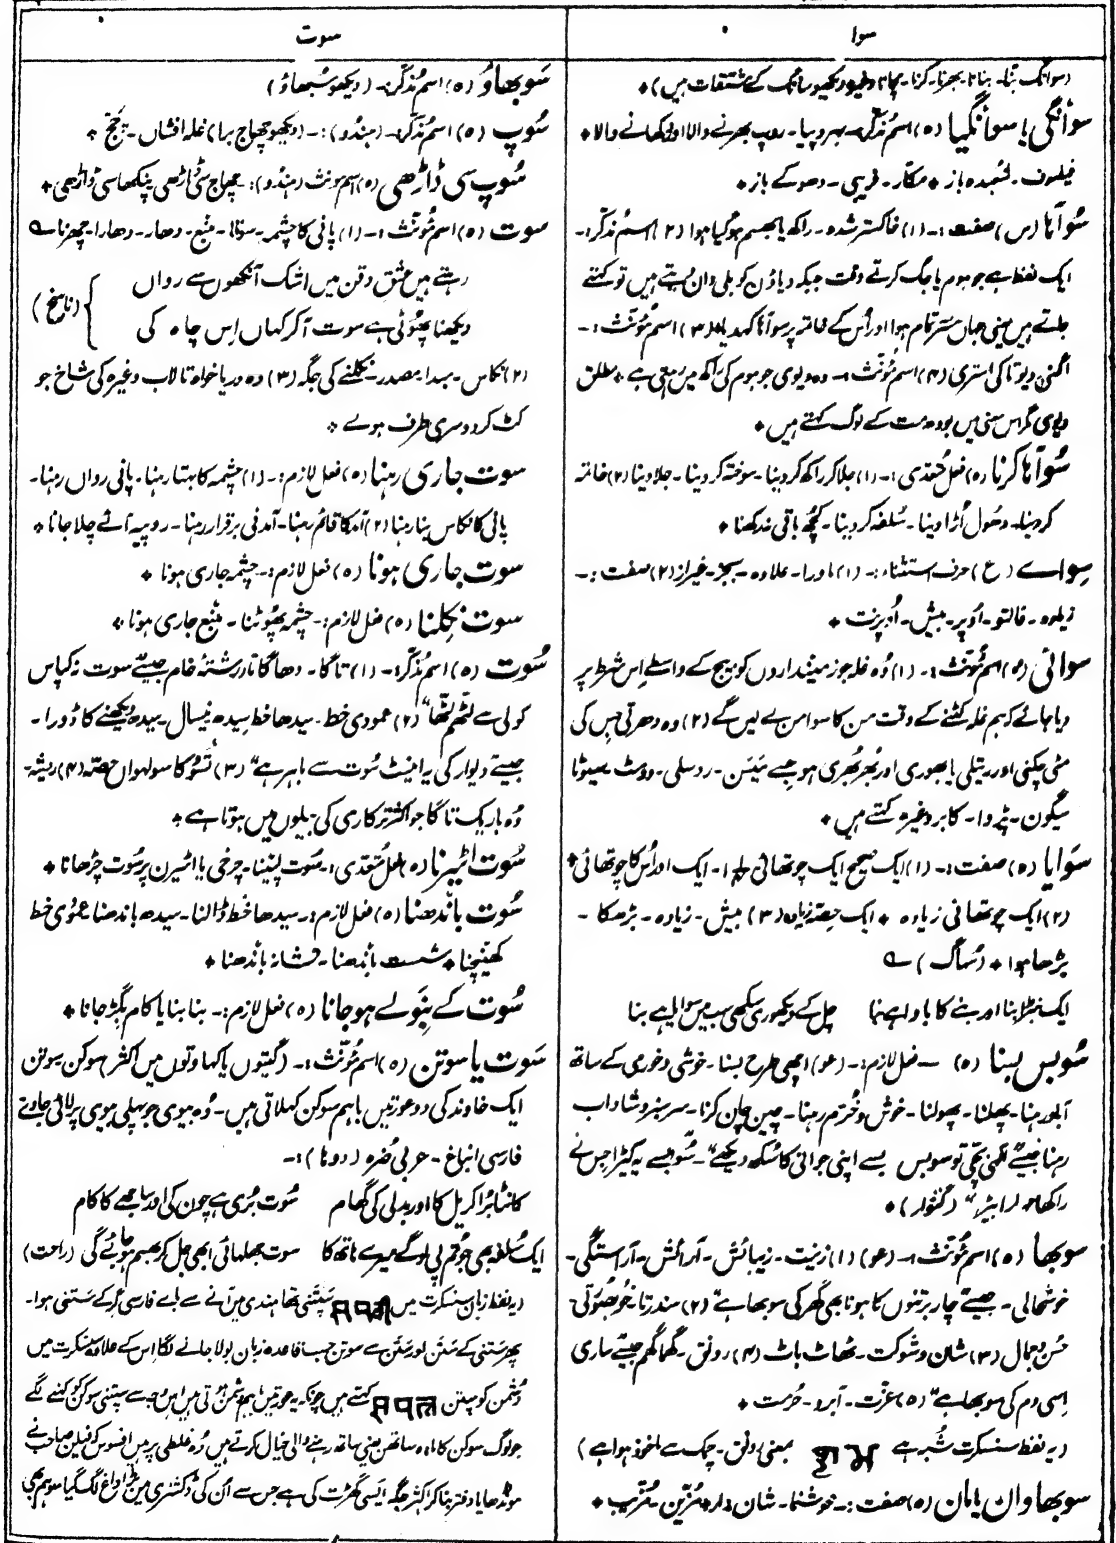 سوا
(سوانگ بننا۔ بنانا۔ بھرنا۔ کرنا۔ مچانا وغیرہ دیکھو سانگ کے مشتقات میں) *
سوانگی یا سوانگیا (ہ) اسم مذکر۔ بہروپیا۔ روپ بھرنے والا اور دکھانے والا *
فیلسوف۔ شعبدہ باز * مکار۔ فریبی۔ دھوکے باز *
سُوآہا (س) صفت :۔ (۱) خاکستر شدہ۔ راکھ یا بھسم ہو گیا ہوا (۲) اسم مذکر:۔
ایک لفظ ہے جو ہوم یا جگ کرتے وقت جبکہ دیاؤں کو بلی دان دیتے ہیں تو کہتے
جاتے ہیں یعنی جہاں منتر تمام ہوا اور اُس کے خاتمہ پر سوآہا کہدیا (۳) اسم مؤنث :۔
اگنی دیوتا کی استری (۴) اسم مؤنث :۔ وہ دیوی جو ہوم کی راکھ میں رہتی ہے * مطلق
دیوی مگر اس معنی میں بودھ مت کے لوگ کہتے ہیں *
سُوآہا کرنا (ہ) فعل متعدی :۔ (۱) جلا کر راکھ کر دینا۔ سوختہ کر دینا۔ جلا دینا (۲) خاتمہ
کر دینا۔ دھول اُڑا دینا۔ سُلفہ کر دینا۔ کچھ باقی نہ رکھنا *
سِوائے (ع) حرف استثناء :۔ (۱) ماورا۔ علاوہ۔ بجز۔ غیر از (۲) صفت :۔
زیادہ۔ فالتو۔ اُوپر۔ بیش۔ اُوپرنت *
سوائی (ہ) اسم مؤنث :۔ (۱) وُہ غلہ جو زمینداروں کو بیج کے واسطے اِس شرط پر
دیا جائے کہ ہم غلہ کٹنے کے وقت من کا سوا من لے لیں گے (۲) وہ دھرتی جس کی
مٹی چکنی اور ریتلی یا بھوری اور بُھر بُھری ہو جسے میسن۔ ردسلی۔ دومٹ۔ سیوٹا
سیگون۔ پڑوا۔ کابر وغیرہ کہتے ہیں *
سَوایا (ہ) صفت :۔ (۱) ایک صحیح ایک چوتھائی ۱¼۔ ایک اور اُس کا چوتھائی *
(۲) ایک چوتھائی زیادہ * ایک حصہ زیادہ (۳) بیش۔ زیادہ۔ بڑھکا۔
بڑھا ہوا * (سُہاگ) ؎
ایک نبڑا بنا اور بنے کا باوا ہے بنا چل کے دیکھو ری سکھی سب میں سوایا ہے بنا
سُوبس بسنا (ہ) — فعل لازم :۔ (عو) اچھی طرح بسنا۔ خوشی و خرمی کے ساتھ
آباد رہنا۔ پھلنا۔ پھولنا۔ خوش و خرم رہنا۔ چین چان کرنا۔ سرسبز و شاداب
رہنا جیسے لگی بچی تو سوبس بسے اپنی جوانی کا سُکھ دیکھے"۔ سوبسے یہ کھیڑا جس نے
راکھا میرا بیڑا" (گنوار) *
سوبھا (ہ) اسم مؤنث :۔ (عو) (۱) زینت۔ زیبائش۔ آرائش۔ آراستگی۔
خوشحالی۔ جیسے چار برتنوں کا ہونا بھی گھر کی سوبھا ہے" (۲) سندرتا۔ خوبصورتی
حُسن و جمال (۳) شان و شوکت۔ ٹھاٹ باٹ (۴) رونق۔ گھما گھم جیسے ساری
اِسی دم کی سوبھا ہے" (۵) عزت۔ آبرو۔ حُرمت *
(یہ لفظ سنسکرت شُبہ ہے بمعنی رونق۔ چمک سے ماخوذ ہوا ہے)
سوبھاوان یا مان (ہ) صفت :۔ خوشنما۔ شان دار۔ مُزیّن۔ مُرتّب *
سوت
سَوبھاؤُ (ہ) اسم مُذکّر:۔ (دیکھو سُبھاؤ)
سُوپ (ہ) اسم مُذکّر :۔ (ہندو) :۔ (دیکھو چھاج برا) غلہ افشاں۔ چَھج *
سُوپ سی ڈاڑھی (ہ) اسم مؤنث (ہندو) :۔ چھاج سی ڈاڑھی پنکھا سی ڈاڑھی *
سوت (ہ) اسم مؤنث :۔ (۱) پانی کا چشمہ۔ سوتا۔ منبع۔ دھار۔ دھارا۔ جھرنا ؎
رہتے ہیں عشقِ ذقن میں اشک آنکھوں سے رواں
دیکھنا پھوٹی ہے سوت آ کر کہاں اِس چاہ کی (ناسخ)
(۲) نکاس۔ مبدا۔ مصدر۔ نکلنے کی جگہ (۳) وہ دریا خواہ تالاب وغیرہ کی شاخ جو
کٹ کر دوسری طرف ہولے *
سوت جاری رہنا (ہ) فعل لازم :۔ (۱) چشمہ کا بہتا رہنا۔ پانی رواں رہنا۔
پانی کا نکاس بنا رہنا (۲) آمد کا قائم رہنا۔ آمدنی برقرار رہنا۔ روپیہ آئے چلا جانا *
سوت جاری ہونا (ہ) فعل لازم :۔ چشمہ جاری ہونا *
سوت نکلنا (ہ) فعل لازم :۔ چشمہ پھوٹنا۔ منبع جاری ہونا *
سُوت (ہ) اسم مُذکّر :۔ (۱) تاگا۔ دھاگا تار رشتۂ خام جیسے سوت نہ کپاس
کولی سے لٹھم لٹھا" (۲) عمودی خط۔ سیدھا خط سیدھ نیسال۔ سیدھ دیکھنے کا ڈورا۔
جیسے دیوار کی یہ اینٹ سُوت سے باہر ہے" (۳) تسُو کا سولہواں حصّہ (۴) ریشہ
وُہ باریک تاگا جو اکثر ترکاری کی بیلوں میں ہوتا ہے *
سُوت اٹیرنا (ہ) فعل متعدی :۔ سُوت لپیٹنا۔ چرخی یا اٹیرن پر سُوت چڑھانا *
سُوت باندھنا (ہ) فعل لازم :۔ سیدھا خط ڈالنا۔ سیدھ باندھنا عمودی خط
کھینچنا * شست باندھنا۔ نشانہ باندھنا *
سُوت کے بِنَولے ہو جانا (ہ) فعل لازم :۔ بنا بنایا کام بگڑ جانا *
سَوت یا سوتن (ہ) اسم مؤنث :۔ (گیتوں یا کہاوتوں میں اکثر) سوکن۔ سوتن
ایک خاوند کی دو عورتیں باہم سوکن کہلاتی ہیں۔ وُہ بیوی جو پہلی بیوی پر لائی جاوے
فارسی انباغ۔ عربی ضُرہ (دوہا) :۔
کانٹا بُرا کریل کا اور بدلی کی گھام سُوت بُری ہے چون کی اور ساجھے کا کام
ایک سُلفہ بھی جو تم پی لوگے میرے ہاتھ کا سوت جھلمائی ابھی جل کر بھسم ہو جائے گی (راحت)
(یہ لفظ زبان سنسکرت میں सपत्नी سپتنی تھا ہندی میں آنے سے بائے فارسی گر کے سَتنی ہوا۔
پھر ستنی کے سَتن اور سَتن سے سوتن حسب قاعدہ زبان بولا جانے لگا اِس کے علاوہ سنسکرت میں
دُشمن کو سپتن सपत्न کہتے ہیں چونکہ یہ عورتیں باہم دشمن ہوتی ہیں اِس وجہ سے سپتنی سوکن کو کہنے لگے
جو لوگ سوکن کا مادہ ساتھن یعنی ساتھ رہنے والی خیال کرتے ہیں وُہ غلطی پر ہیں افسوس کہ فیلن صاحب نے